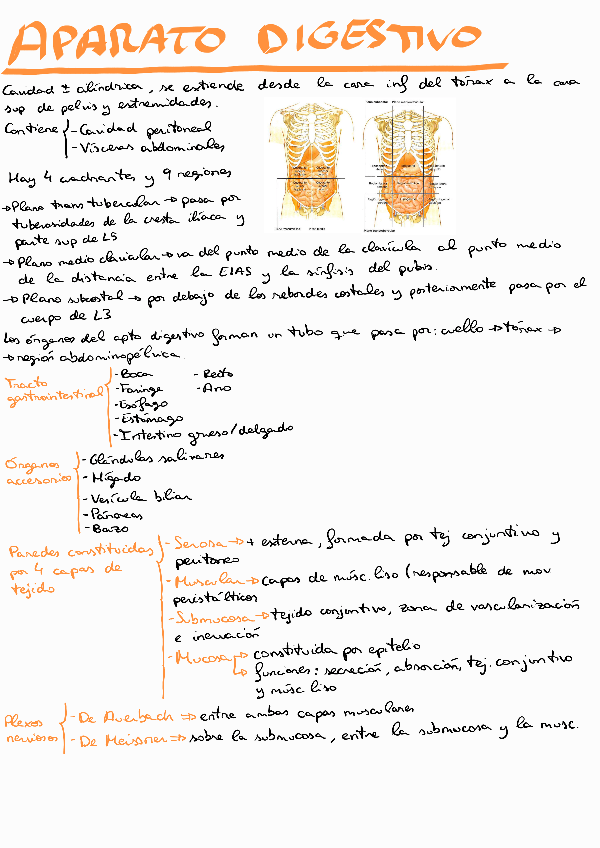 APARATO DIGESTIVO
Cavidad ± cilíndrica, se extiende desde la cara inf del tórax a la cara
sup de pelvis y extremidades.
Contiene - Cavidad peritoneal
- Vísceras abdominales
Hay 4 cuadrantes y 9 regiones
→ Plano transtubercular → pasa por
tuberosidades de la cresta ilíaca y
parte sup de L5
→ Plano medio clavicular → va del punto medio de la clavícula al punto medio
de la distancia entre la EIAS y la sínfisis del pubis.
→ Plano subcostal → por debajo de los rebordes costales y posteriormente pasa por el
cuerpo de L3
Los órganos del apto digestivo forman un tubo que pasa por: cuello → tórax →
→ región abdominopélvica.
Tracto gastrointestinal
- Boca - Recto
- Faringe - Ano
- Esófago
- Estómago
- Intestino grueso/delgado
Órganos accesorios
- Glándulas salivares
- Hígado
- Vesícula biliar
- Páncreas
- Bazo
Paredes constituidas por 4 capas de tejido
- Serosa → + externa, formada por tej conjuntivo y
peritoneo
- Muscular → capas de músc. liso (responsable de mov
peristálticos
- Submucosa → tejido conjuntivo, zona de vascularización
e inervación
- Mucosa → constituida por epitelio
→ funciones: secreción, absorción, tej. conjuntivo
y músc liso
Plexos nerviosos
- De Auerbach ⇒ entre ambas capas musculares
- De Meissner ⇒ sobre la submucosa, entre la submucosa y la musc.